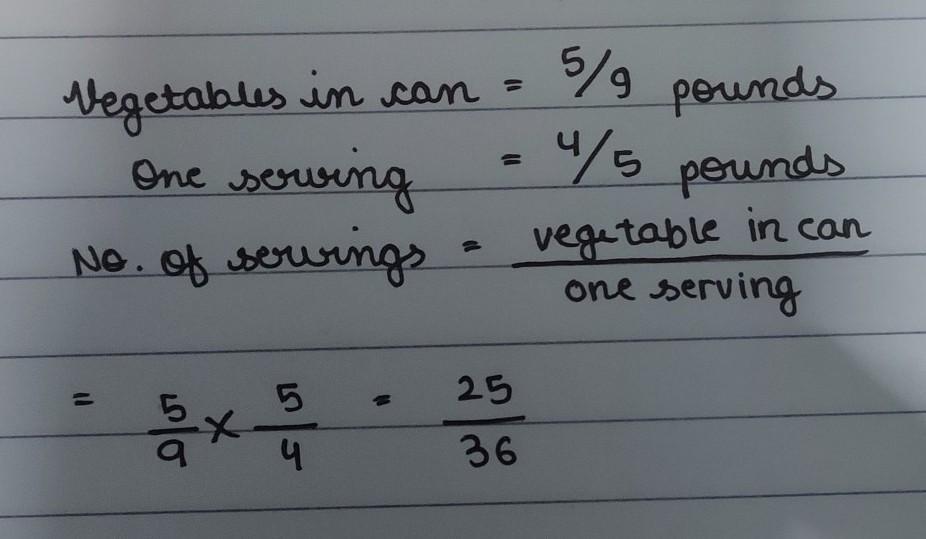 Vegetables in can = 5/9 pounds
One serving = 4/5 pounds
No. of servings = vegetable in can / one serving
= 5/9 × 5/4 = 25/36